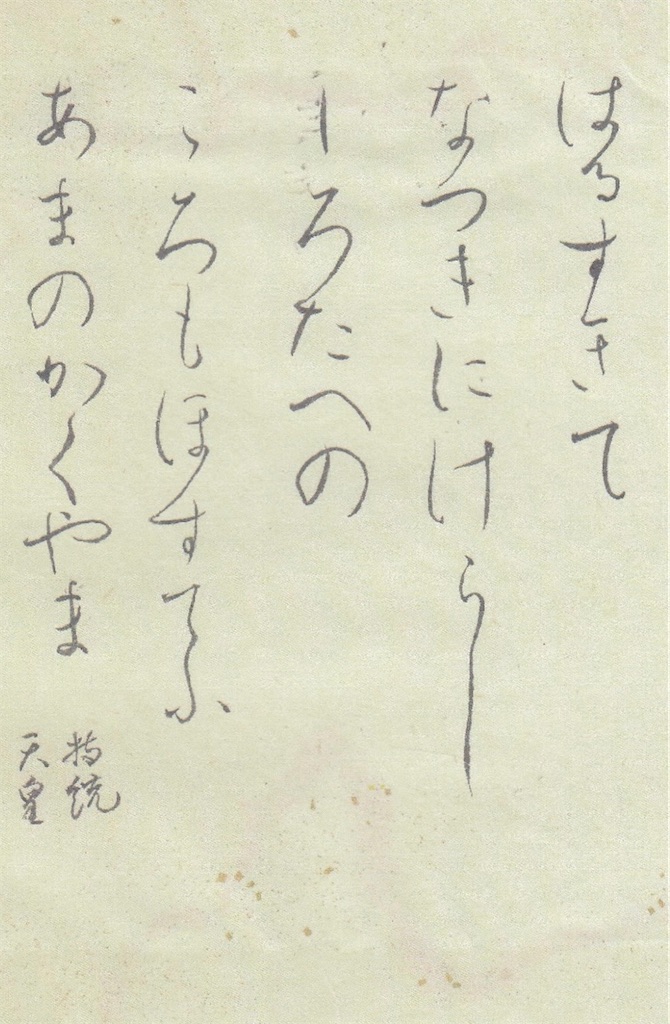 はるすきて
なつきにけらし
しろたへの
ころもほすてふ
あまのかくやま
持統
天皇